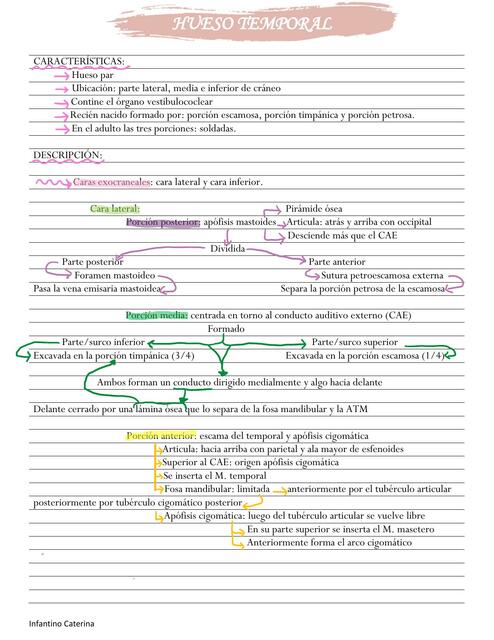 HUESO TEMPORAL
CARACTERÍSTICAS:
Hueso par
Ubicación: parte lateral, media e inferior de cráneo
Contine el órgano vestibulococlear
Recién nacido formado por: porción escamosa, porción timpánica y porción petrosa.
En el adulto las tres porciones: soldadas.
DESCRIPCIÓN:
Caras exocraneales: cara lateral y cara inferior.
Cara lateral:
Pirámide ósea
Porción posterior: apófisis mastoides
Articula: atrás y arriba con occipital
Desciende más que el CAE
Dividida
Parte posterior
Parte anterior
Foramen mastoideo
Sutura petroescamosa externa
Pasa la vena emisaria mastoidea
Separa la porción petrosa de la escamosa
Porción media: centrada en torno al conducto auditivo externo (CAE)
Formado
Parte/surco inferior
Parte/surco superior
Excavada en la porción timpánica (3/4)
Excavada en porción escamosa (1/4)
Ambos forman un conducto dirigido medialmente y algo hacia delante
Delante cerrado por una lámina ósea que lo separa de la fosa mandibular y la ATM
Porción anterior: escama del temporal y apófisis cigomática
Articula: hacia arriba con parietal y ala mayor de esfenoides
Superior al CAE: origen apófisis cigomática
Se inserta el M. temporal
Fosa mandibular: limitada anteriormente por el tubérculo articular
posteriormente por tubérculo cigomático posterior
Apófisis cigomática: luego del tubérculo articular se vuelve libre
En su parte superior se inserta el M. masetero
Anteriormente forma el arco cigomático
Infantino Caterina